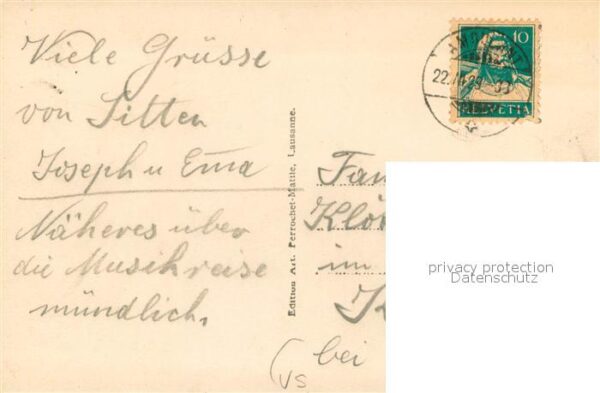 Viele Grüsse
von Sitten
Joseph u Erna
Näheres über
die Musikreise
mündlich,
Edition Art. Perrochet-Matile, Lausanne.
10
HELVETIA
22.
Fam
Klö
im
K
bei
VS
privacy protection
Datenschutz